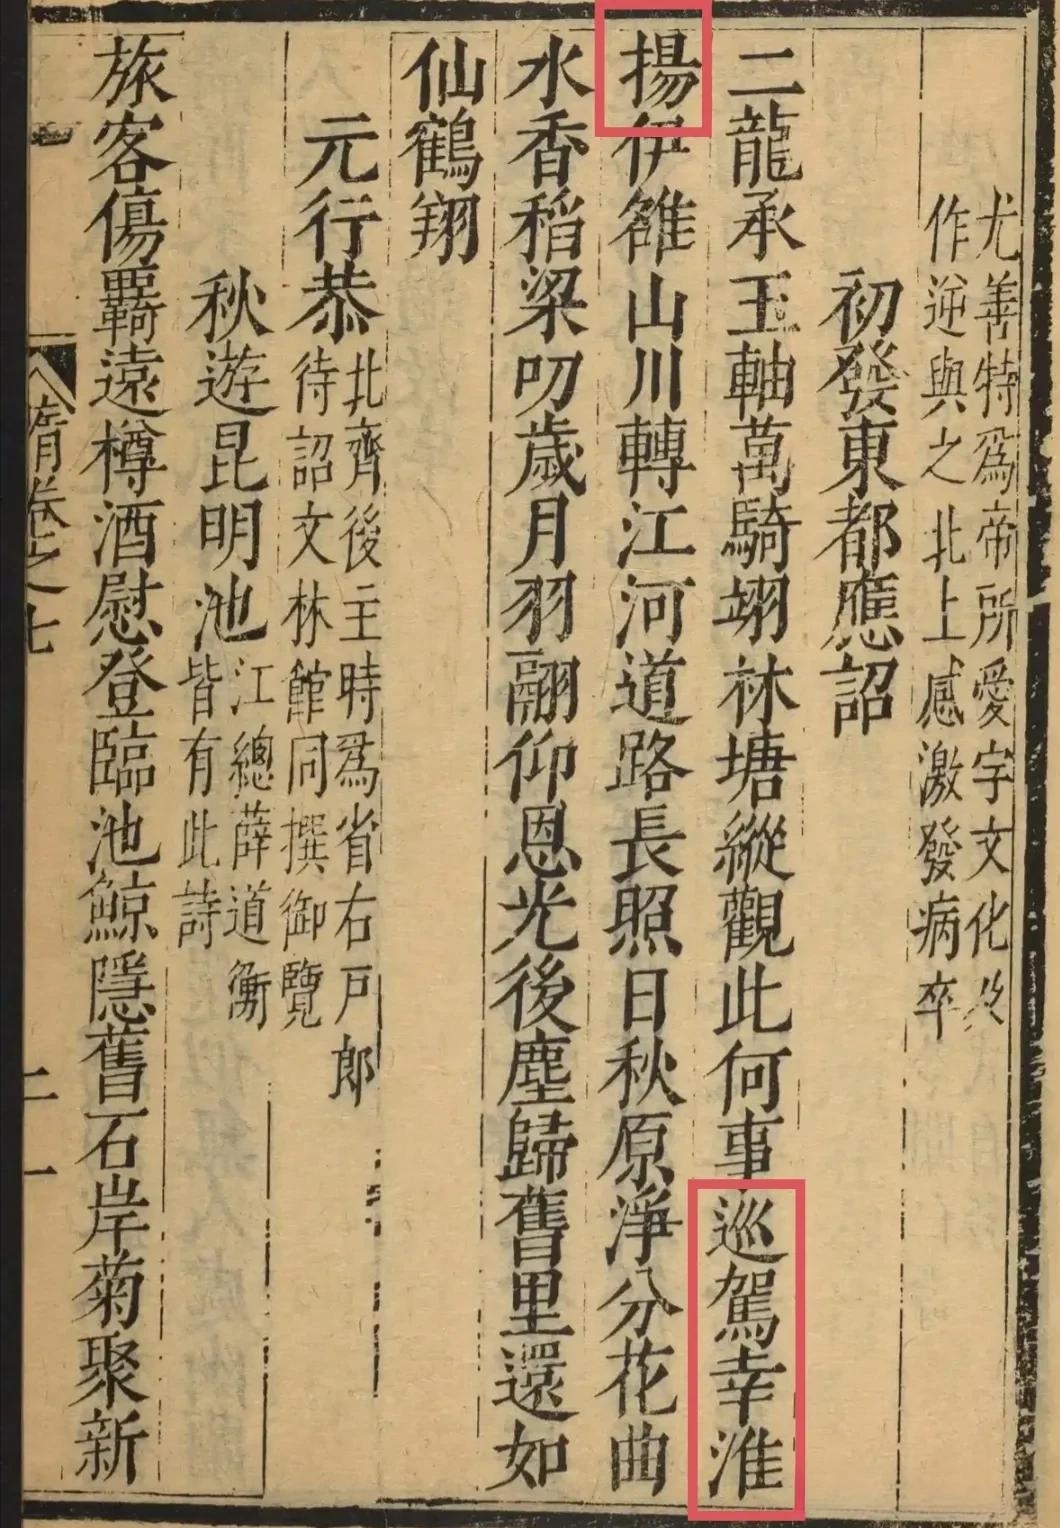 尤善特爲帝所愛宇文化及
作逆與之北上感激發病卒
初發東都應詔
二龍承玉軸萬騎翊林塘縱觀此何事巡駕幸淮
揚伊雒山川轉江河道路長照日秋原淨分花曲
水香稻梁叨歲月羽翮仰恩光後塵歸舊里還如
仙鶴翔
元行恭
北齊後主時爲省右戶郎
待詔文林館同撰御覽
秋遊昆明池
江總薛道衡
皆有此詩
旅客傷羈遠樽酒慰登臨池鯨隱舊石岸菊聚新
隋卷之七
二一